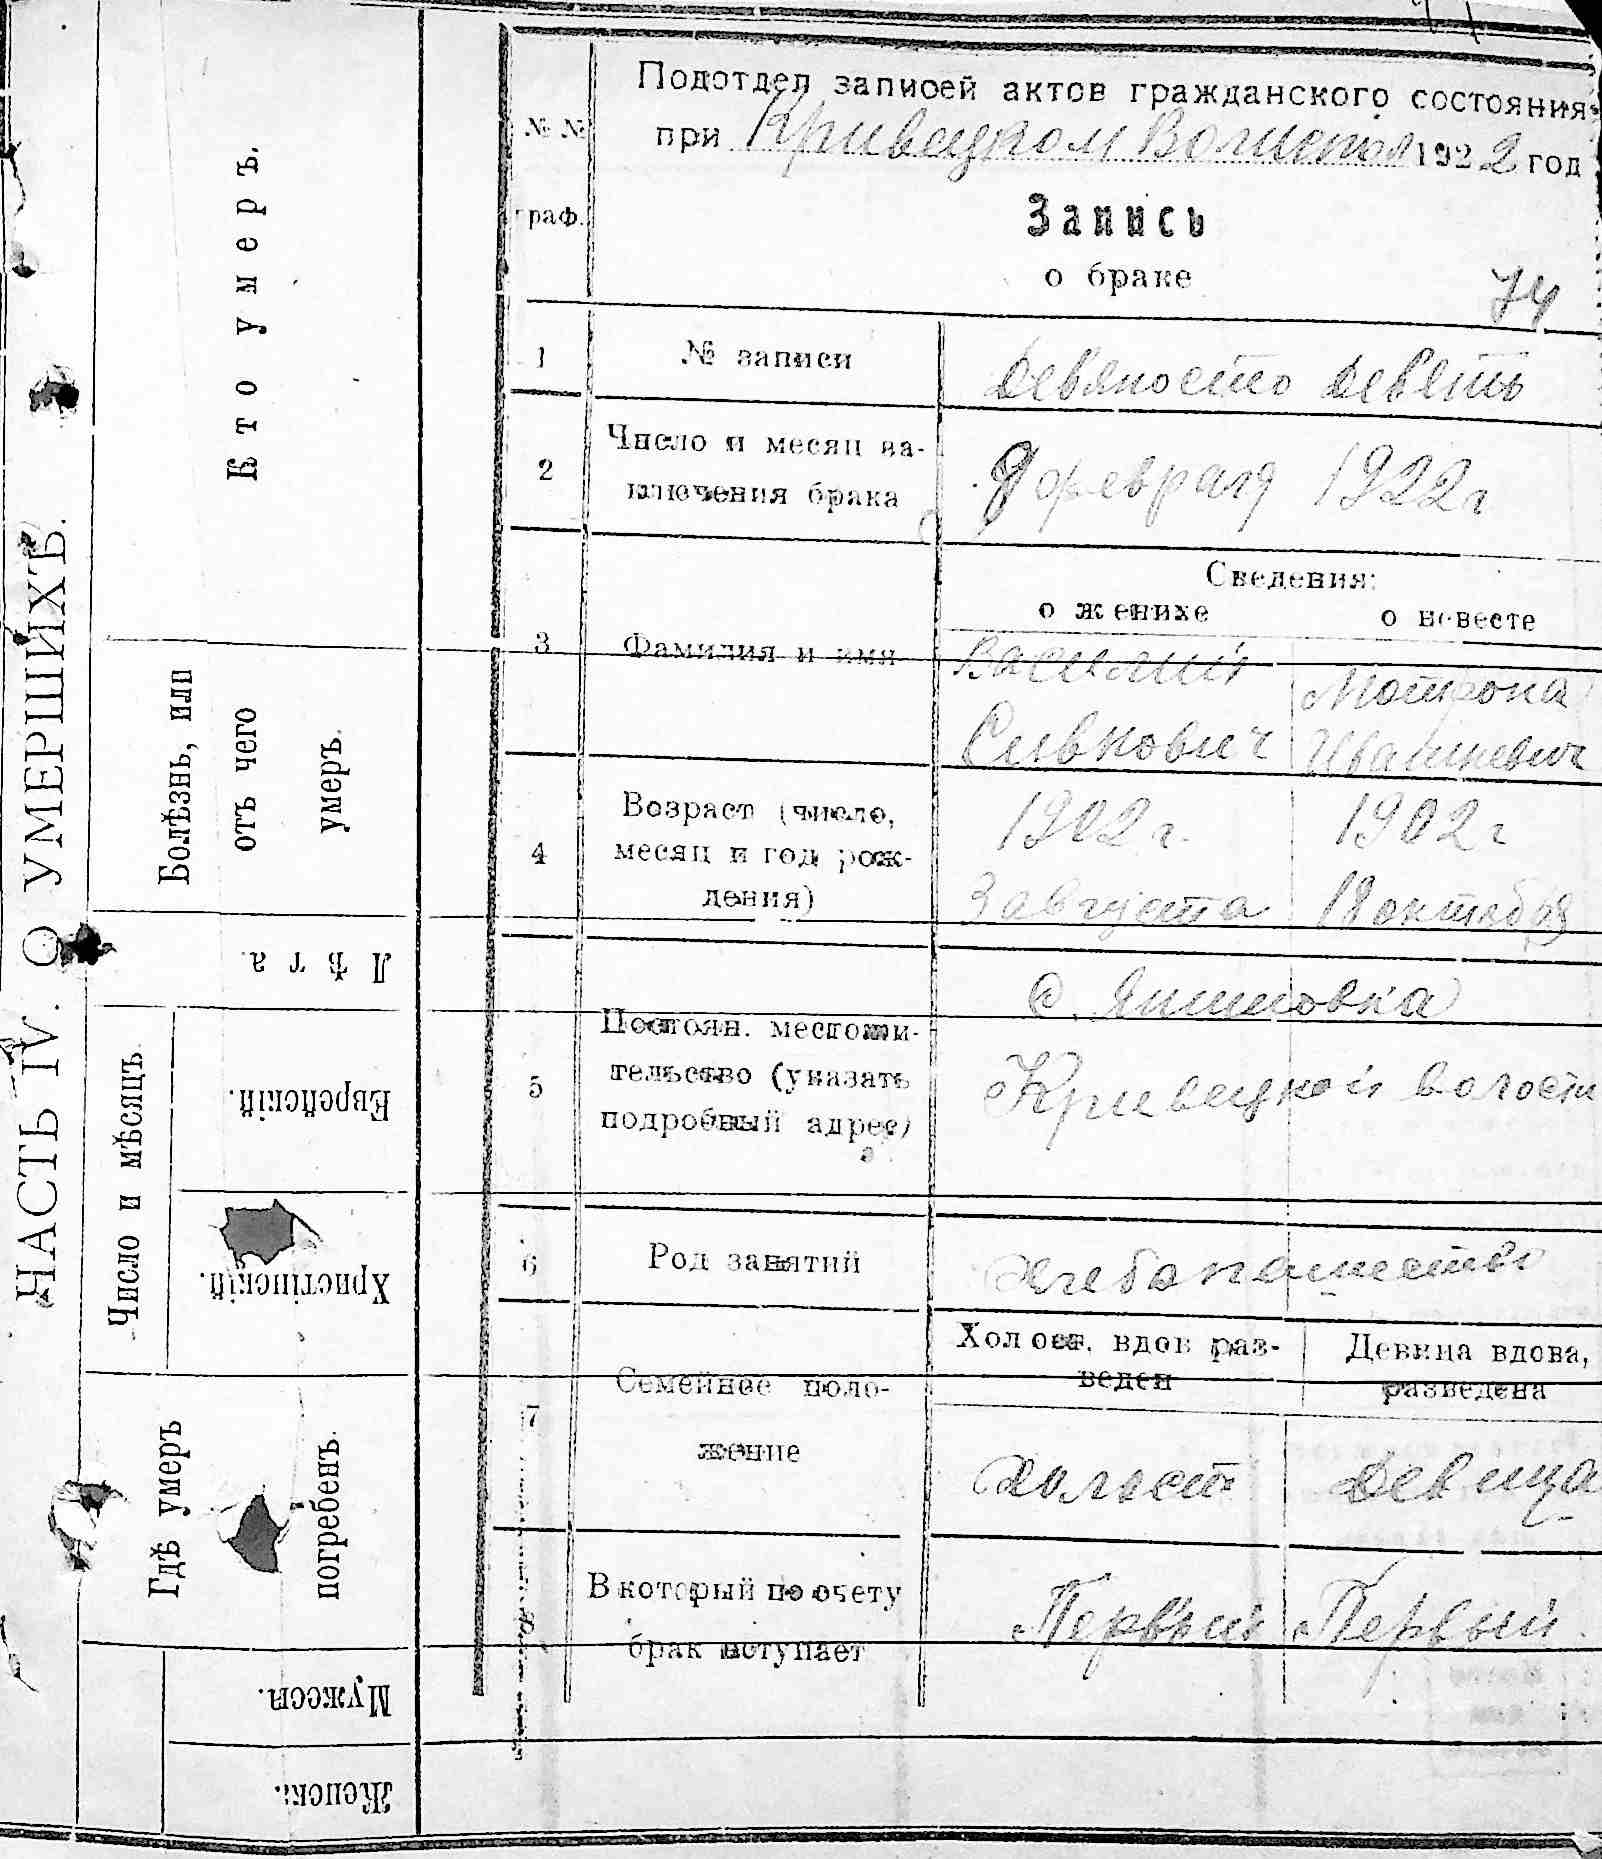 ЧАСТЬ IV. О УМЕРШИХЪ.
Кто умеръ.
Болѣзнь, или
отъ чего
умеръ.
Лѣта.
Число и мѣсяцъ
Еврейскій.
Христінскій.
Гдѣ умеръ
погребенъ.
Мужеск.
Женск.
№ №
граф.
Подотдел записей актов гражданского состояния
при Кривецком Волисполк 1922 год
Запись
о браке
74
1
№ записи
девяносто девять
2
Число и месяц за-
ключения брака
9 февраля 1922 г
Сведения:
о женихе
о невесте
3
Фамилия и имя
Василий
Сивкович
Матрона
Ивашкевич
4
Возраст (число,
месяц и год рож-
дения)
1902 г.
3 августа
1902 г
18 октября
5
Постоян. местожи-
тельство (указать
подробный адрес)
с. Яшшовка
Кривецкой волости
6
Род занятий
хлебопашество
7
Семейное поло-
жение
Холост, вдов раз-
веден
Девица вдова,
разведена
холост
девица
8
В который по счету
брак вступает
Первый
Первый.